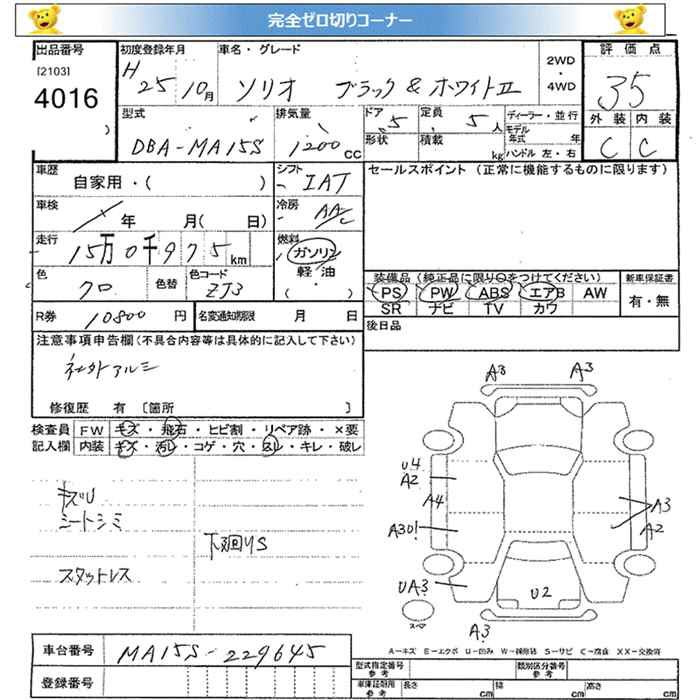 完全ゼロ切りコーナー
出品番号
[2103]
4016
)
初度登録年月
H 25 10月
車名・グレード
ソリオ ブラック&ホワイトII
2WD
・
4WD
評価点
35
外装 内装
C C
型式
DBA-MA15S
排気量
1200 CC
ドア 5
形状
定員 5 人
積載 kg
ディーラー・並行
モデル年式 年
ハンドル 左・右
車歴
自家用・( )
シフト
IAT
セールスポイント (正常に機能するものに限ります)
車検
年 月( 日)
冷房
AAC
走行
15万0千975km
燃料
ガソリン
軽・油
( ・ )
色
クロ
色替
色コード
ZJ3
装備品(純正品に限り○をつけてください)
PS PW ABS エアB AW
SR ナビ TV カワ
新車保証書
有・無
R券 10800 円
名変通知期限 月 日
後日品
注意事項申告欄(不具合内容等は具体的に記入して下さい)
社外アルミ
修復歴 有 〔箇所 〕
検査員 FW キズ・飛石・ヒビ割・リペア跡・×要
記入欄 内装 キズ・汚レ・コゲ・穴・スレ・キレ・破レ
キズU
シートシミ
下廻りS
スタットレス
A3 A3
U4
A2
A4
A3
A2
UA3
U2
A3
スペア
A-キズ E-エクボ U-凹み W-補修跡 S-サビ C-腐食 XX-交換済
車台番号 MA15S-229645
登録番号
型式指定番号
参考
類別区分番号
参考
車庫証明用
参考
長さ cm
幅 cm
高さ cm